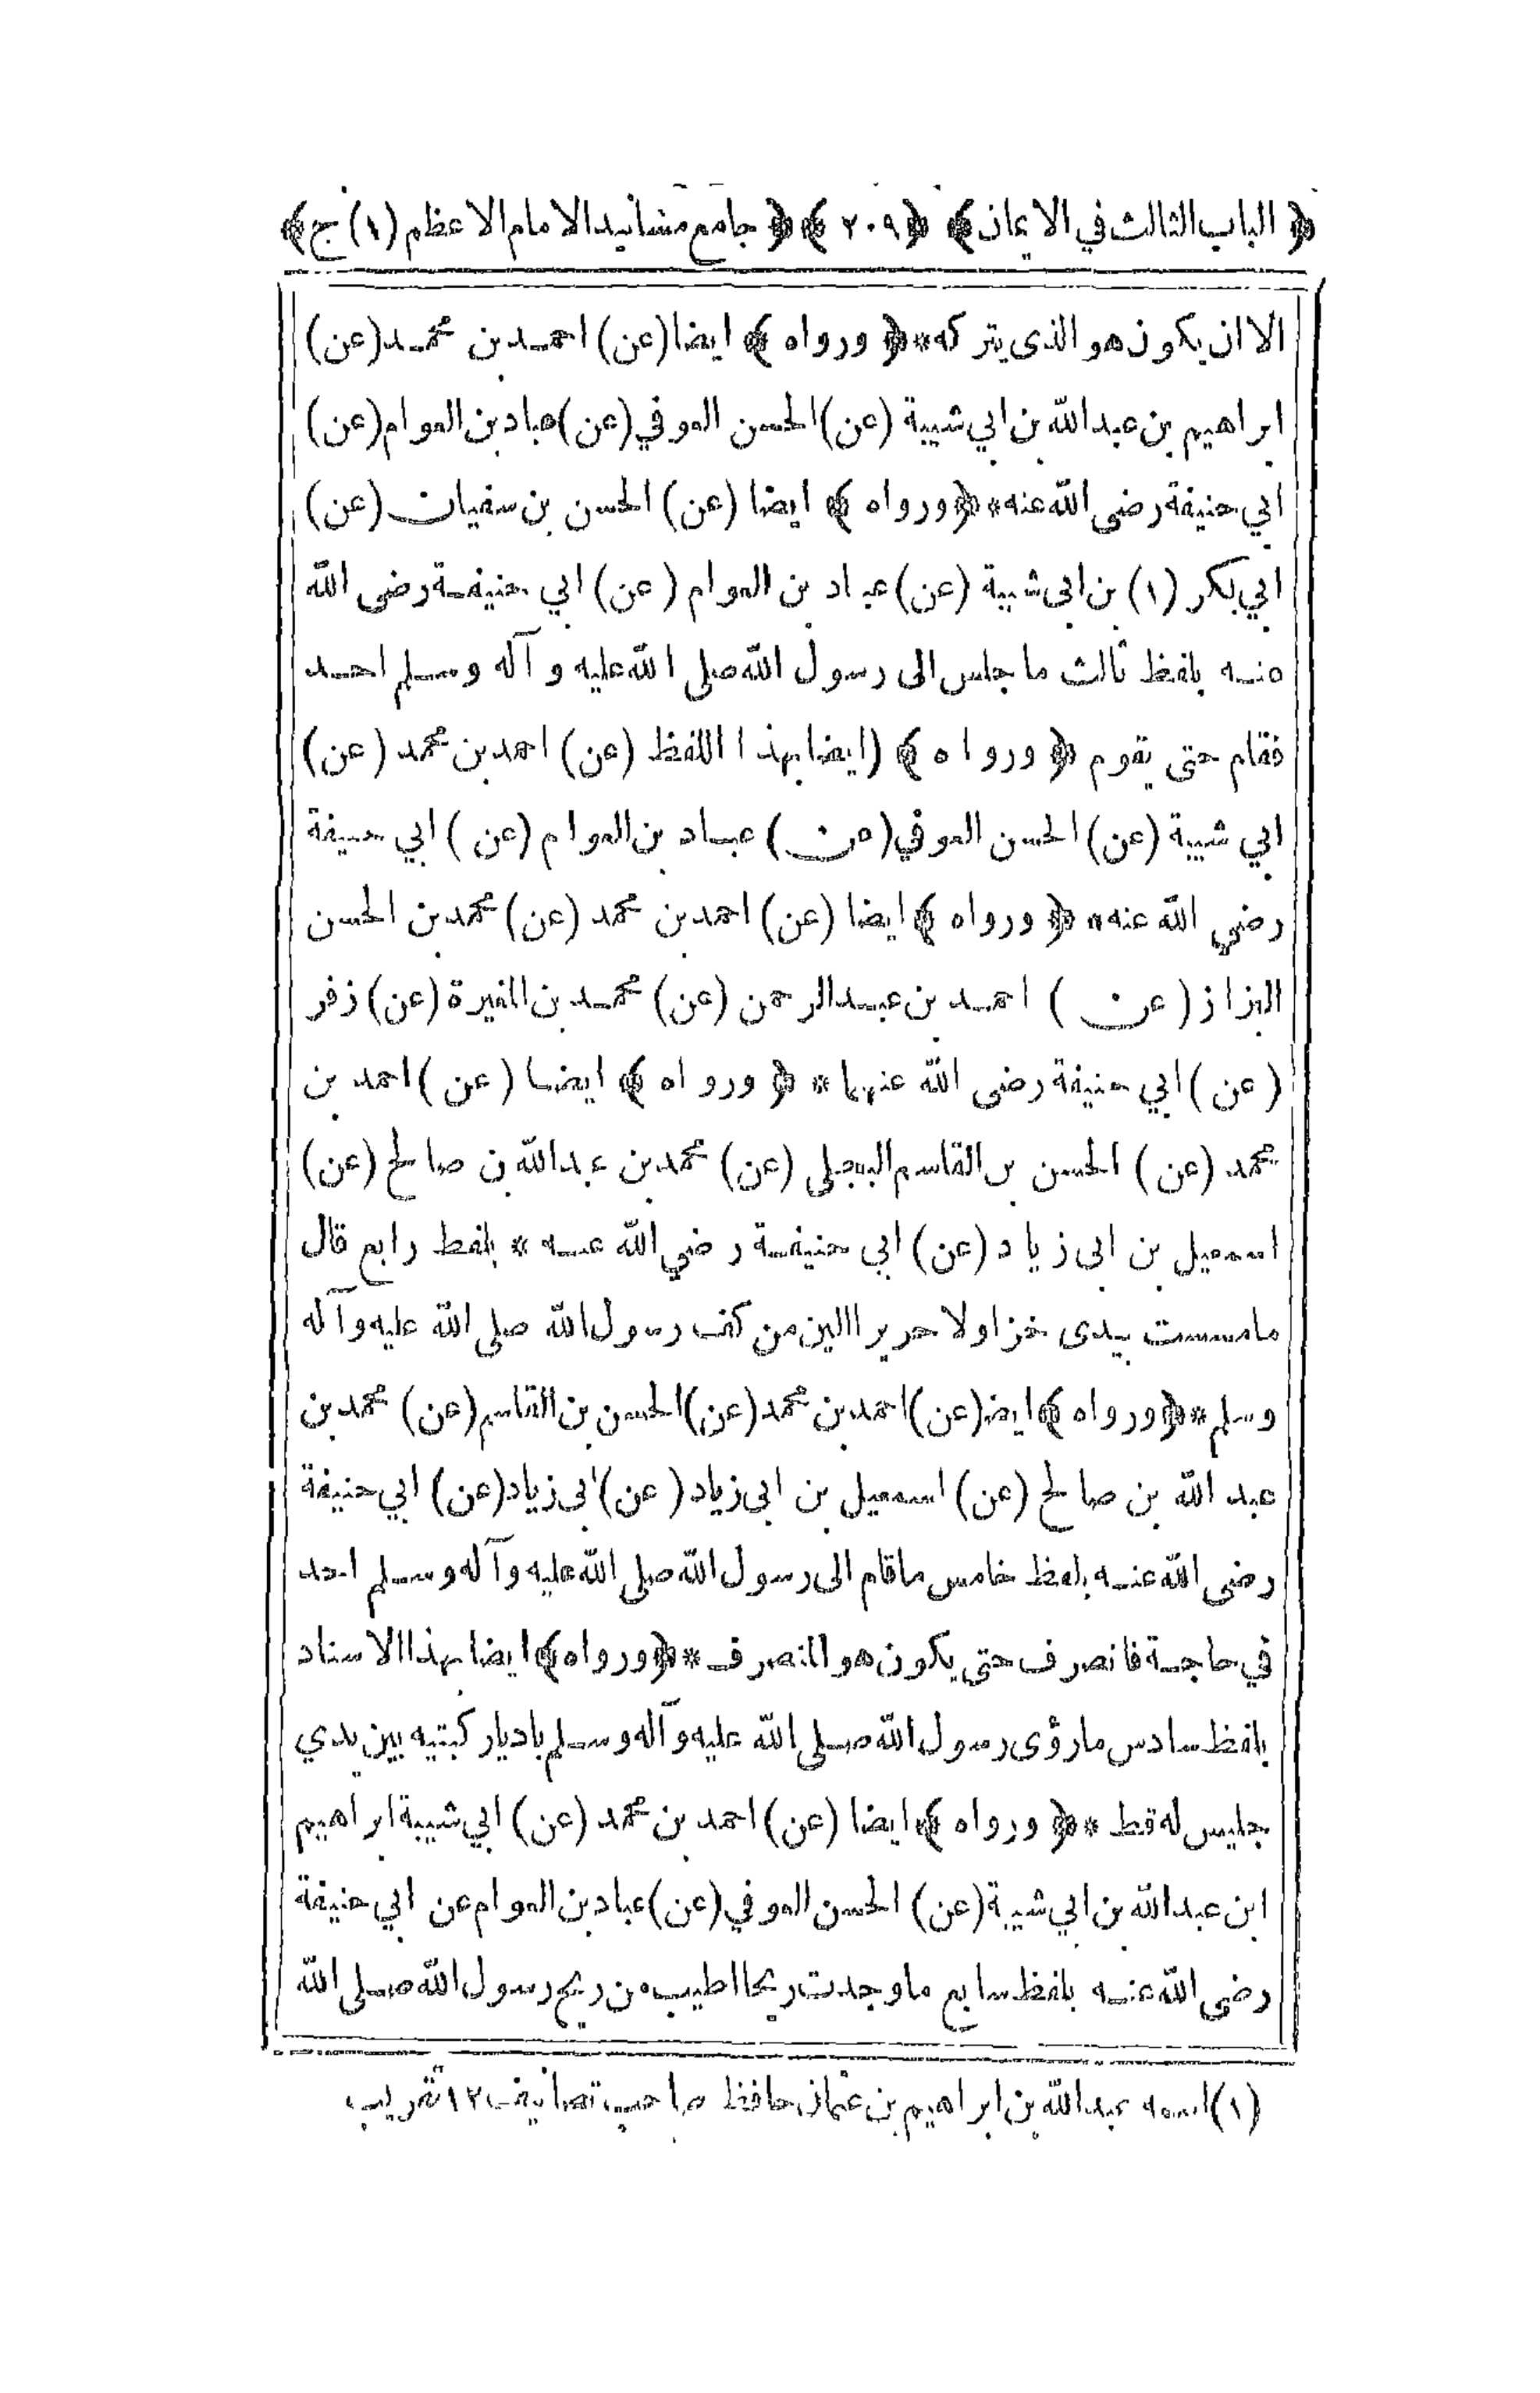 ﴿ الباب الثالث في الايمان ﴾ ﴿ ٢٠٩ ﴾ ﴿ جامع مسانيد الامام الاعظم (١) ج ﴾
الا ان يكون هو الذى يتركه * ﴿ ورواه ﴾ ايضا (عن) احمد بن محمد (عن)
ابراهيم بن عبد الله بن ابي شيبة (عن) الحسن العوفي (عن) عباد بن العوام (عن)
ابي حنيفة رضى الله عنه * ﴿ ورواه ﴾ ايضا (عن) الحسن بن سفيان (عن)
ابي بكر (١) بن ابى شيبة (عن) عباد بن العوام (عن) ابي حنيفة رضى الله
عنه بلفظ ثالث ما جلس الى رسول الله صلى الله عليه وآله وسلم احد
فقام حتى يقوم ﴿ ورواه ﴾ (ايضا بهذا اللفظ (عن) احمد بن محمد (عن)
ابي شيبة (عن) الحسن العوفي (عن) عباد بن العوام (عن) ابي حنيفة
رضي الله عنه * ﴿ ورواه ﴾ ايضا (عن) احمد بن محمد (عن) محمد بن الحسن
البزاز (عن) احمد بن عبد الرحمن (عن) محمد بن المغيرة (عن) زفر
(عن) ابي حنيفة رضى الله عنهما * ﴿ ورواه ﴾ ايضا (عن) احمد بن
محمد (عن) الحسن بن القاسم البجلى (عن) محمد بن عبد الله بن صالح (عن)
اسمعيل بن ابى زياد (عن) ابي حنيفة رضي الله عنه * بلفظ رابع قال
ما مسست بيدى خزا ولا حريرا الين من كف رسول الله صلى الله عليه وآله
وسلم * ﴿ ورواه ﴾ ايضا (عن) احمد بن محمد (عن) الحسن بن القاسم (عن) محمد بن
عبد الله بن صالح (عن) اسمعيل بن ابى زياد (عن) ابى زياد (عن) ابي حنيفة
رضى الله عنه بلفظ خامس ما قام الى رسول الله صلى الله عليه وآله وسلم احد
في حاجة فانصرف حتى يكون هو المنصرف * ﴿ ورواه ﴾ ايضا بهذا الاسناد
بلفظ سادس ما رؤى رسول الله صلى الله عليه وآله وسلم باديا ركبتيه بين يدي
جليس له قط * ﴿ ورواه ﴾ ايضا (عن) احمد بن محمد (عن) ابي شيبة ابراهيم
ابن عبد الله بن ابي شيبة (عن) الحسن العوفي (عن) عباد بن العوام عن ابي حنيفة
رضى الله عنه بلفظ سابع ما وجدت ريحا اطيب من ريح رسول الله صلى الله
(١) اسمه عبد الله بن ابراهيم بن عثمان حافظ صاحب تصانيف ١٢ تقريب